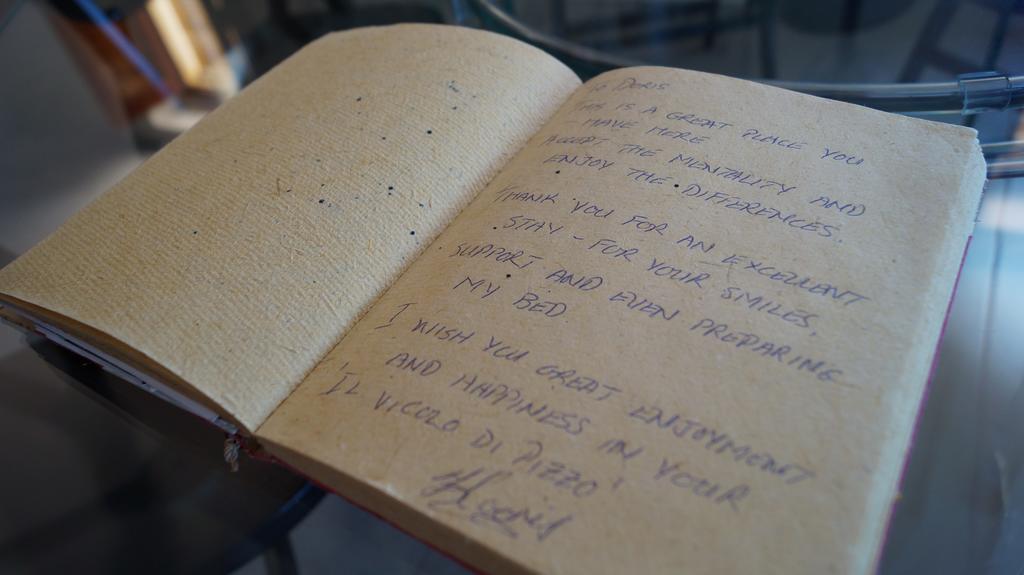 To Doris
THIS IS A GREAT PLACE YOU
HAVE HERE
ACCEPT THE MENTALITY AND
ENJOY THE DIFFERENCES.
THANK YOU FOR AN EXCELLENT
STAY - FOR YOUR SMILES,
SUPPORT AND EVEN PREPARING
MY BED.
I WISH YOU GREAT ENJOYMENT
AND HAPPINESS IN YOUR
'IL VICOLO DI PIZZO'